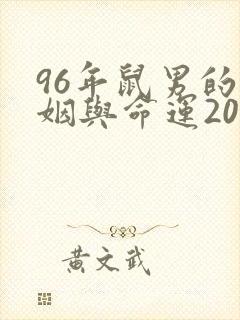 96年鼠男的
姻與命運20
黃文武